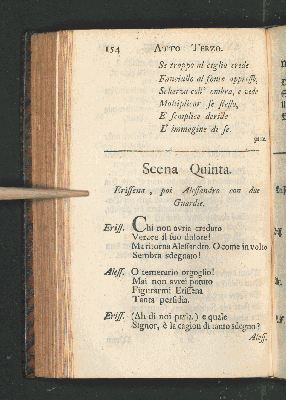 154 ATTO TERZO.
Se troppo al ciglio crede
Fanciullo al fonte appresso,
Scherza coll' ombra, e vede
Moltiplicar se stesso,
E semplice deride
L' immagine di se.
Scena Quinta.
Erissena, poi Alessandro con due
Guardie.
Eriss. Chi non avria creduto
Verace il suo dolore!
Ma ritorna Alessandro. O come in volto
Sembra sdegnato!
Aless. O temerario orgoglio!
Mai non avrei potuto
Figurarmi Erissena
Tanta perfidia.
Eriss. (Ah di noi parla.) e quale
Signor, è la cagion di tanto sdegno?
Aless.